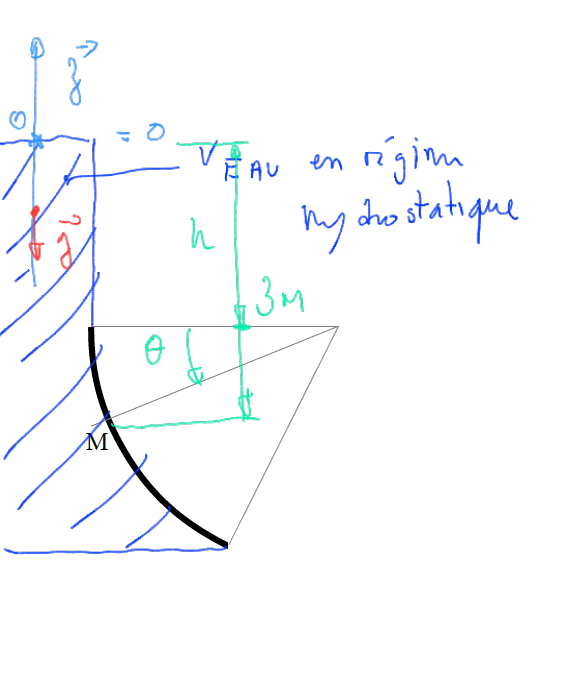 z
O
= 0
EAU en régime
hydrostatique
g
h
3M
θ
M